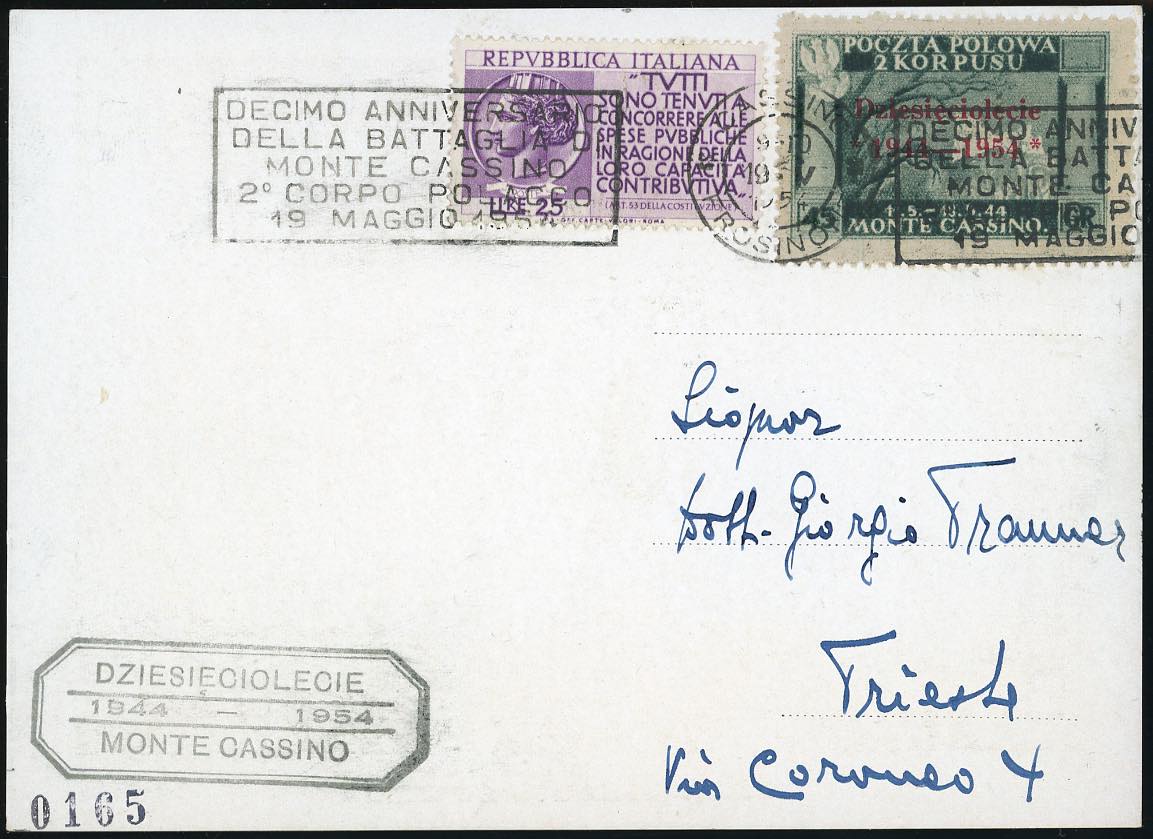 DECIMO ANNIVERSARIO
DELLA BATTAGLIA DI
MONTE CASSINO
2° CORPO POLACCO
19 MAGGIO 1954
REPVBBLICA ITALIANA
"TVTTI
SONO TENVTI A
CONCORRERE ALLE
SPESE PVBBLICHE
IN RAGIONE DELLA
LORO CAPACITÀ
CONTRIBVTIVA"
(ART. 53 DELLA COSTITVZIONE)
LIRE 25
ROMA
CASSINO
19
ROSINO
POCZTA POLOWA
2 KORPUSU
Dziesięciolecie
* 1944 – 1954 *
45 GR
MONTE CASSINO.
DECIMO ANNIV
DELLA BATTA
MONTE CA
PO
19 MAGGIO
Signor
Dott. Giorgio
Trieste
Via Coroneo 4
DZIESIĘCIOLECIE
1944 — 1954
MONTE CASSINO
0165